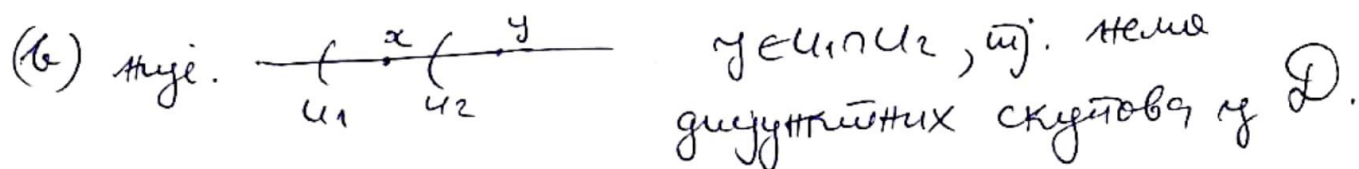 (в) није. x y y∈U₁∩U₂, тј. нема
U₁ U₂ дисјунктних скупова у D.